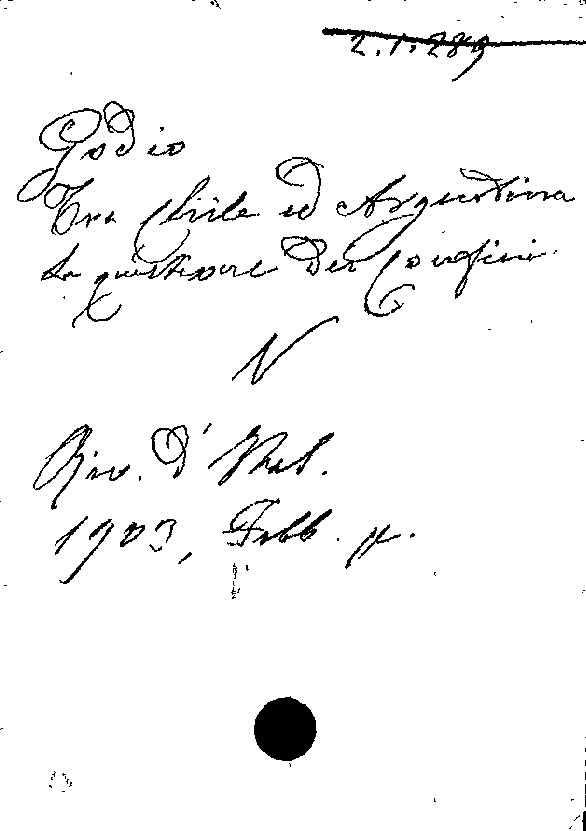 2.1.289
Godio
Tra Chile ed Argentina
La questione dei Confini
N
Riv. d'Ital.
1903, Febb. p.